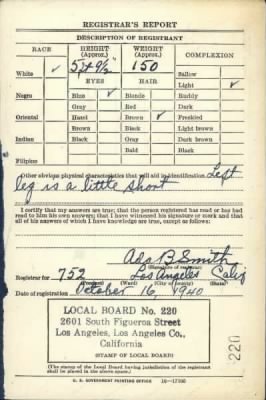 REGISTRAR'S REPORT
DESCRIPTION OF REGISTRANT
RACE HEIGHT (Approx.) WEIGHT (Approx.) COMPLEXION
White ✓ 5 ft 9½" 150 Sallow
EYES HAIR Light ✓
Negro Blue ✓ Blonde Ruddy
Gray Red Dark
Oriental Hazel Brown ✓ Freckled
Brown Black Light brown
Indian Black Gray Dark brown
Bald Black
Filipino
Other obvious physical characteristics that will aid in identification Left
leg is a little short
I certify that my answers are true; that the person registered has read or has had
read to him his own answers; that I have witnessed his signature or mark and that
all of his answers of which I have knowledge are true, except as follows:
Ada B Smith
(Signature of registrar)
Registrar for 752 Los Angeles Calif
(Precinct) (Ward) (City or county) (State)
Date of registration October 16, 1940
LOCAL BOARD No. 220
2601 South Figueroa Street
Los Angeles, Los Angeles Co.,
California
(STAMP OF LOCAL BOARD)
220
(The stamp of the Local Board having jurisdiction of the registrant
shall be placed in the above space.)
U. S. GOVERNMENT PRINTING OFFICE 16—17105